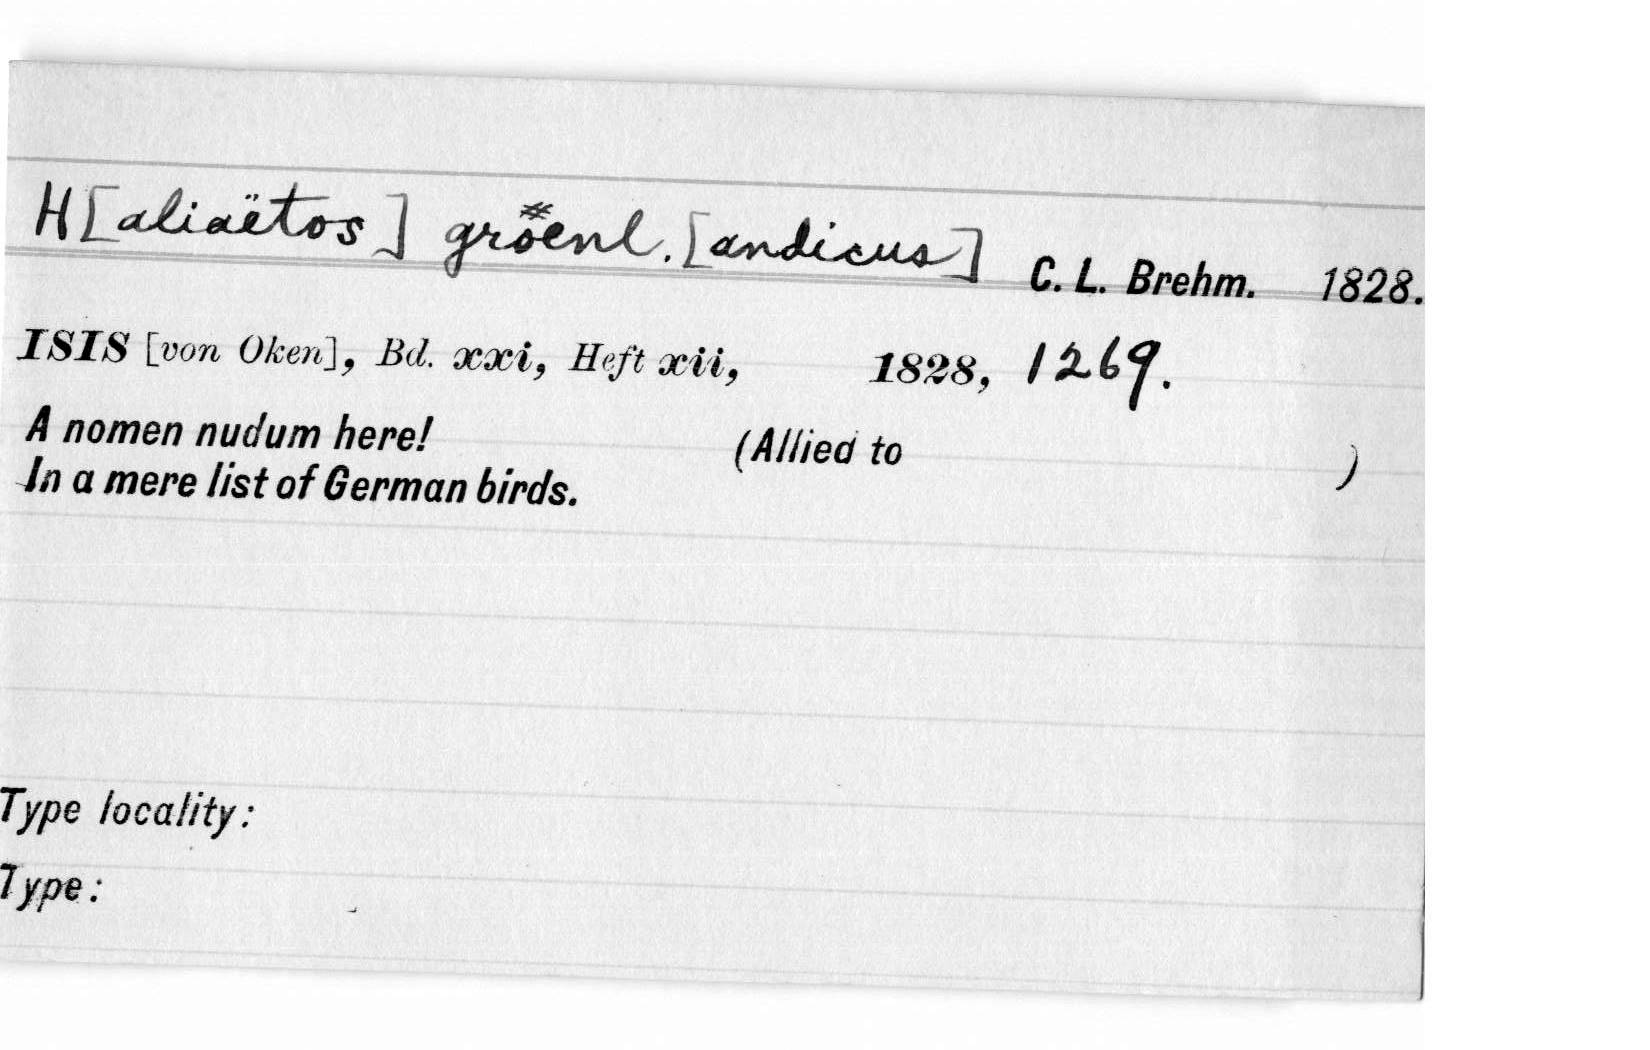 H[aliaëtos] gröenl.[andicus] C. L. Brehm. 1828.
ISIS [von Oken], Bd. xxi, Heft xii, 1828, 1269.
A nomen nudum here! (Allied to )
In a mere list of German birds.
Type locality:
Type: